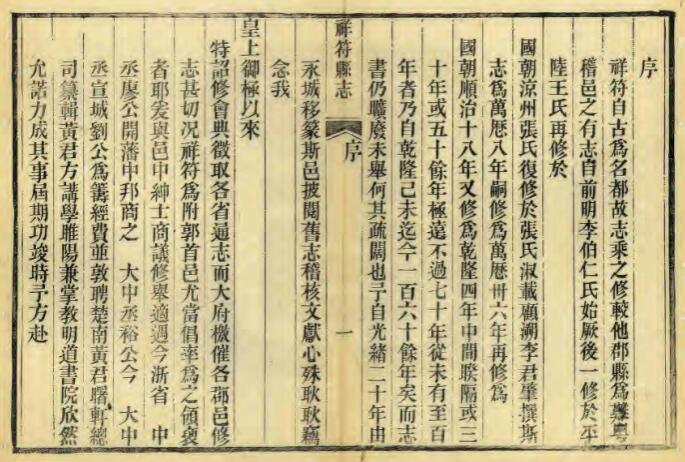 序
祥符自古爲名都故志乘之修較他郡縣爲難粤
稽邑之有志自前明李伯仁氏始厥後一修於平
陸王氏再修於
國朝涼州張氏復修於張氏淑載顧溯李君肇撰斯
志爲萬曆八年嗣修爲萬曆卅六年再修爲
國朝順治十八年又修爲乾隆四年中間暌隔或三
十年或五十餘年極遠不過七十年從未有至百
年者乃自乾隆己未迄今一百六十餘年矣而志
書仍曠廢未舉何其疏闊也予自光緒二十年由
祥符縣志
序
一
永城移篆斯邑披閱舊志稽核文獻心殊耿耿竊
念我
皇上御極以來
特詔修會典徵取各省通志而大府檄催各郡邑修
志甚切況祥符爲附郭首邑尤當倡率爲之領袖
者耶爰與邑中紳士商議修舉適遇今浙省 中
丞廖公開藩中邦商之 大中丞裕公今 大中
丞宣城劉公爲籌經費並敦聘楚南黃君曙軒總
司纂輯黃君方講學睢陽兼掌教明道書院欣然
允諾力成其事屆期功竣時予方赴